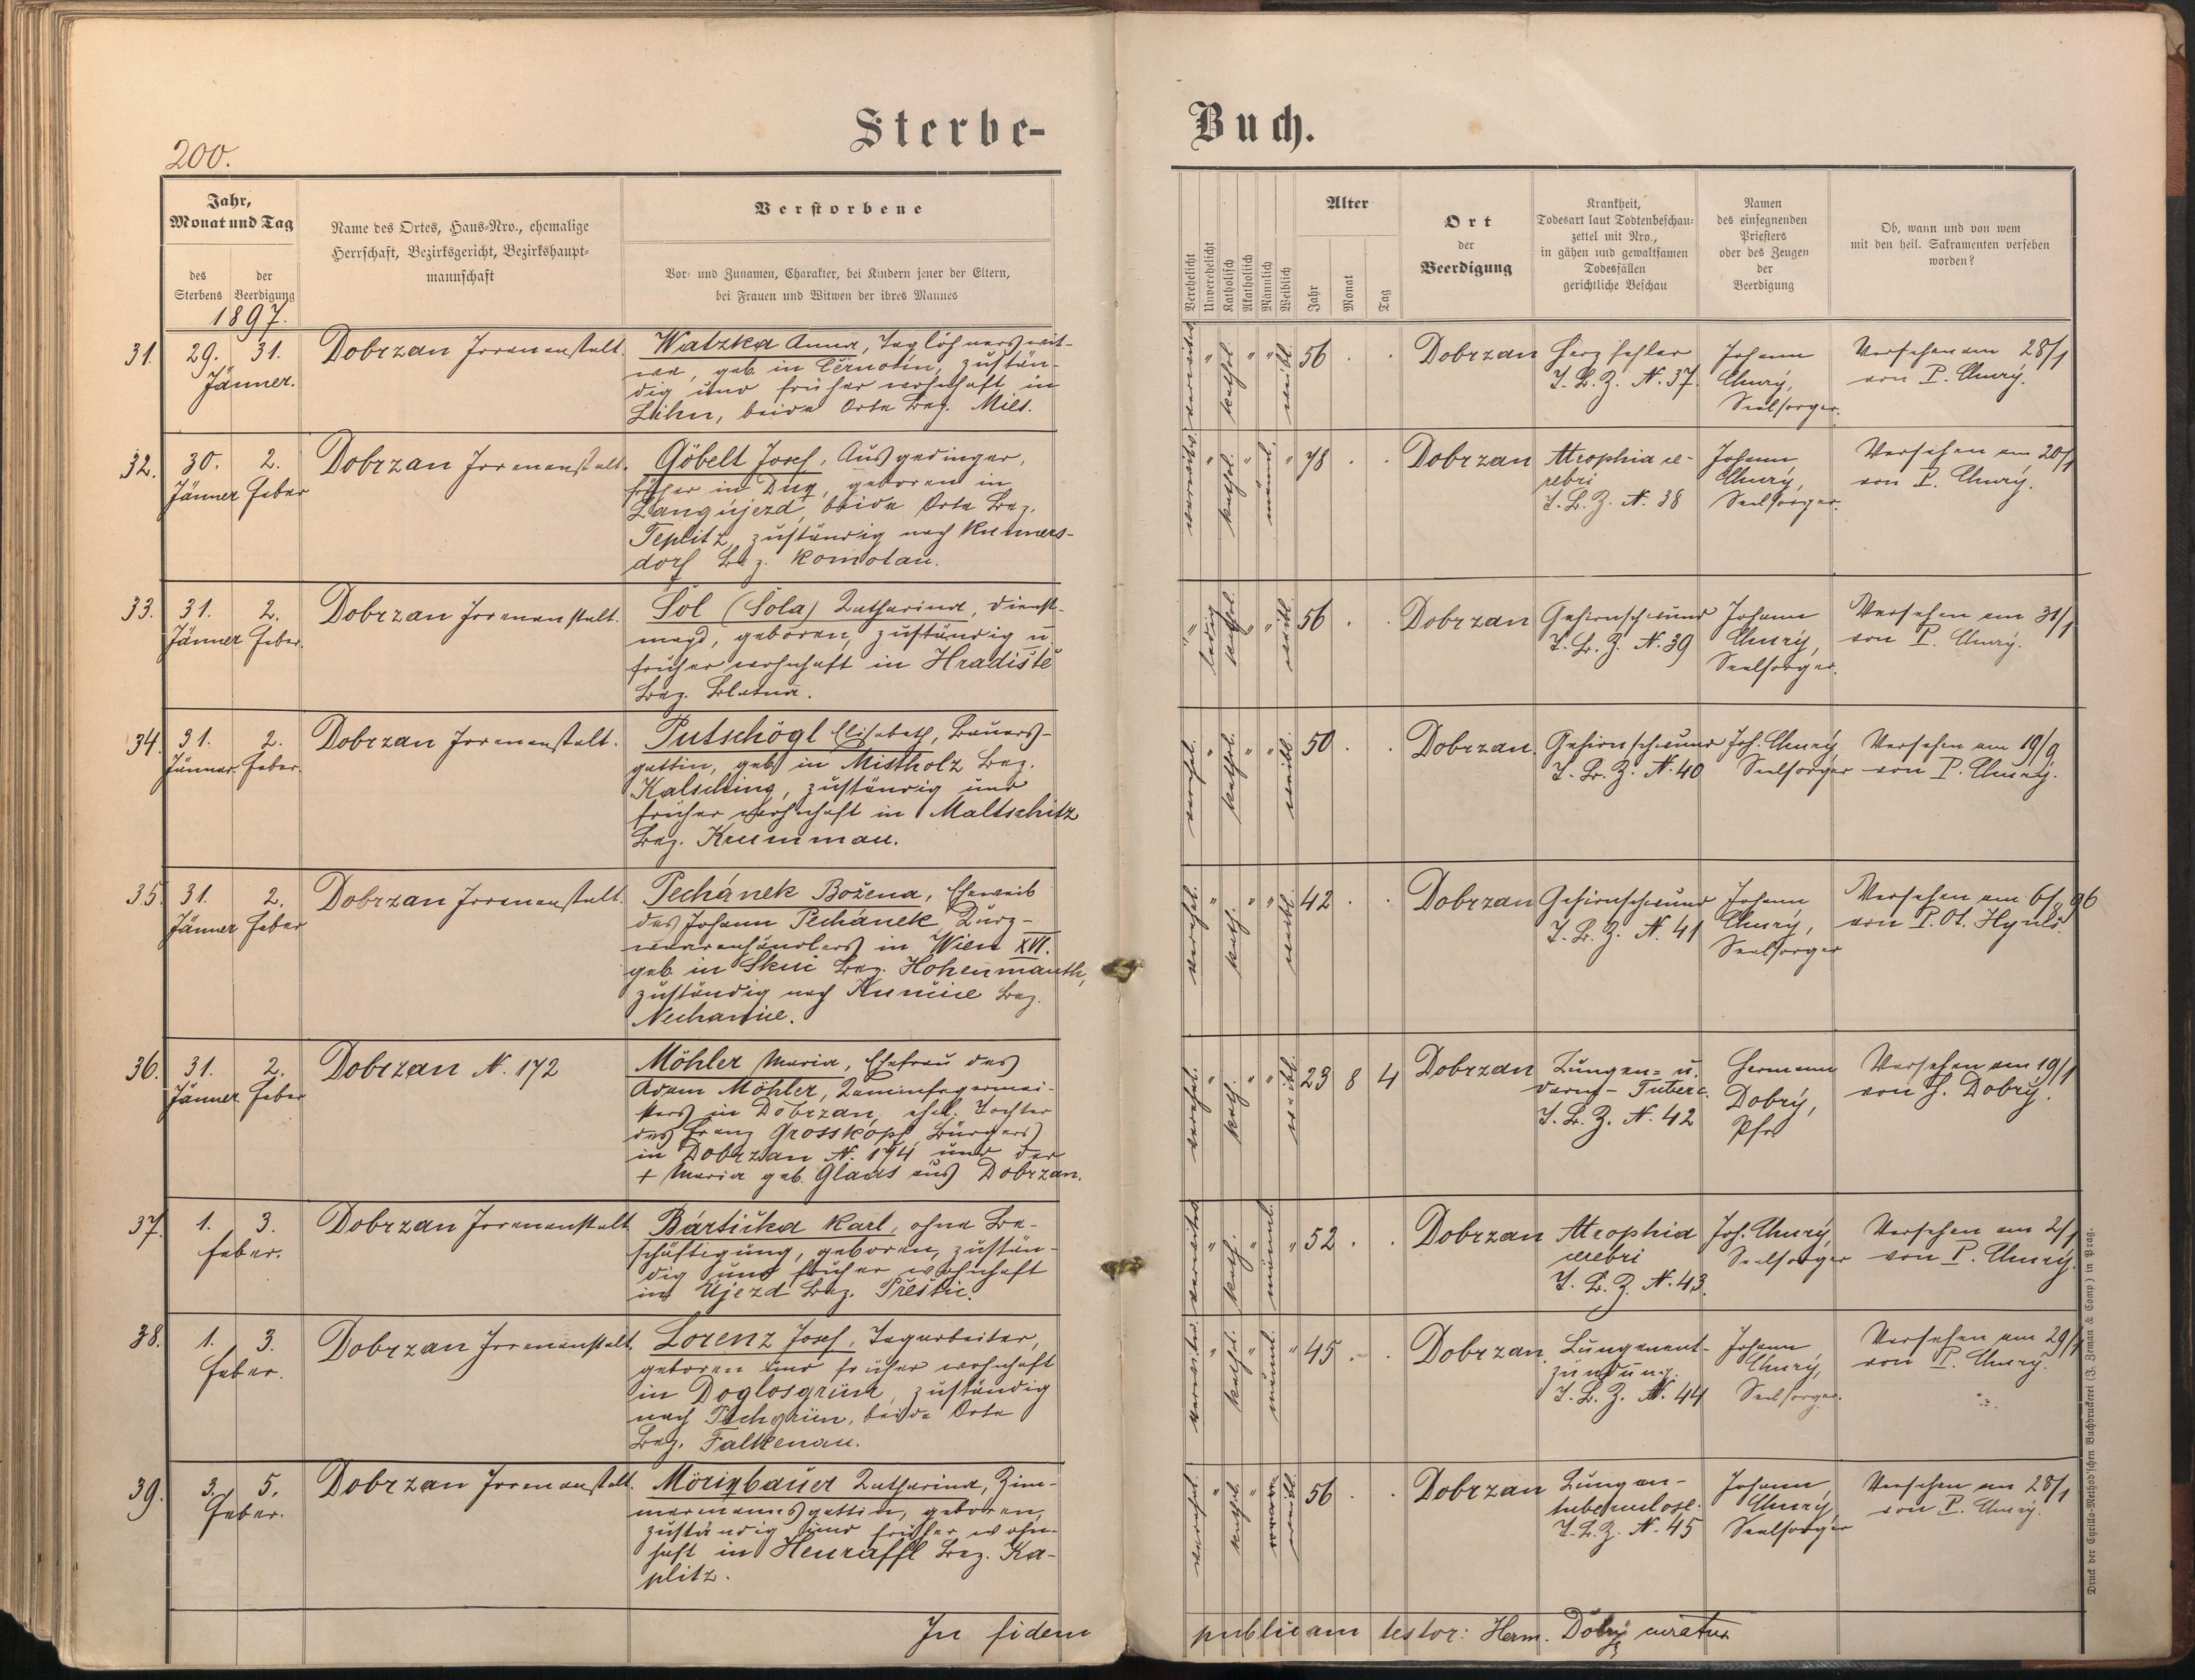 Sterbe-
Buch.
200.
Jahr,
Monat und Tag
des
Sterbens
der
Beerdigung
1897.
Name des Ortes, Haus-Nro., ehemalige
Herrschaft, Bezirksgericht, Bezirkshaupt-
mannschaft
Verstorbene
Vor- und Zunamen, Charakter, bei Kindern jener der Eltern,
bei Frauen und Witwen der ihres Mannes
Verehelicht
Unverehelicht
Katholisch
Akatholisch
Männlich
Weiblich
Alter
Jahr
Monat
Tag
Ort
der
Beerdigung
Krankheit,
Todesart laut Todtenbeschau-
zettel mit Nro.,
in gähen und gewaltsamen
Todesfällen
gerichtliche Beschau
Namen
des einsegnenden
Priesters
oder des Zeugen
der
Beerdigung
Ob, wann und von wem
mit den heil. Sakramenten versehen
worden?
31. 29. 31.
Jänner.
Dobrzan Irrenanstalt.
Watzka Anna, Taglöhnerswit-
we, geb. in Černotin, zustän-
dig und früher wohnhaft in
Lihn, beide Orte Bez. Mies.
verwitwet " kathol. " " weibl. 56 . .
Dobrzan
Herzfehler
T. B. Z. N. 37.
Johann
Chury,
Seelsorger.
Versehen am 28/1
von P. Chury.
32. 30. 2.
Jänner Feber
Dobrzan Irrenanstalt.
Göbelt Josef, Ausgedinger,
früher in Dux, geboren in
Langujezd, beide Orte Bez.
Teplitz, zuständig nach Kunners-
dorf Bez. Komotau.
verwitw. " kathol. " männl. " 78 . .
Dobrzan
Atrophia ce-
rebri
T. B. Z. N. 38
Johann
Chury,
Seelsorger.
Versehen am 20/1
von P. Chury.
33. 31. 2.
Jänner Feber.
Dobrzan Irrenanstalt.
Šol (Šola) Katharina, Dienst-
magd, geboren, zuständig u.
früher wohnhaft in Hradiště
Bez. Blatna.
" ledig kathol. " " weibl. 56 . .
Dobrzan
Gehirnschwund
T. B. Z. N. 39
Johann
Chury,
Seelsorger.
Versehen am 31/1
von P. Chury.
34. 31. 2.
Jänner. Feber.
Dobrzan Irrenanstalt.
Putschögl Elisabeth, Bauers-
gattin, geb. in Mistholz Bez.
Kalsching, zuständig und
früher wohnhaft in Maltschitz
Bez. Krummau.
verehel. " kathol. " " weibl. 50 . .
Dobrzan.
Gehirnschwund
T. B. Z. N. 40
Joh. Chury
Seelsorger
Versehen am 19/9
von P. Chury.
35. 31. 2.
Jänner Feber
Dobrzan Irrenanstalt.
Pechánek Božena, Eheweib
des Johann Pechánek Kurz-
waarenhändlers in Wien XVI.
geb. in Skuč Bez. Hohenmauth,
zuständig nach Kunčic Bez.
Nechanice.
verehel. " kath. " " weibl. 42 . .
Dobrzan
Gehirnschwund
T. B. Z. N. 41
Johann
Chury,
Seelsorger
Versehen am 6/8 96
von P. Ot. Hynek.
36. 31. 2.
Jänner Feber
Dobrzan N. 172
Möhler Maria, Ehefrau des
Adam Möhler, Kaminfegermei-
sters in Dobrzan, ehel. Tochter
des Franz Grosskopf, Bürgers
in Dobrzan N. 174 und der
+ Maria geb. Glaas aus Dobrzan.
verehel. " kath. " " weibl. 23 8 4
Dobrzan
Lungen- u.
Darm-Tuberc.
T. B. Z. N. 42
Hermann
Dobrý,
Pfr
Versehen am 19/1
von H. Dobrý.
37. 1. 3.
Feber.
Dobrzan Irrenanstalt
Bártička Karl, ohne Be-
schäftigung, geboren, zustän-
dig und früher wohnhaft
in Újezd Bez. Přeštic.
verwitwet " kath. " männl. " 52 . .
Dobrzan
Atrophia
cerebri
T. B. Z. N. 43.
Joh. Chury,
Seelsorger
Versehen am 2/1
von P. Chury.
38. 1. 3.
Feber.
Dobrzan Irrenanstalt.
Lorenz Josef, Tagarbeiter,
geboren und früher wohnhaft
in Doglosgrün, zuständig
nach Pechgrün, beide Orte
Bez. Falkenau.
verwitw. " kathol. " männl. " 45 . .
Dobrzan.
Lungenent-
zündung.
T. B. Z. N. 44
Johann
Chury,
Seelsorger.
Versehen am 29/1
von P. Chury.
39. 3. 5.
Feber.
Dobrzan Irrenanstalt.
Mörixbauer Katharina, Zim-
mermannsgattin, geboren,
zuständig und früher wohn-
haft in Heuraffl Bez. Ka-
plitz.
verehel. " kathol. " weibl. 56 . .
Dobrzan
Lungen-
tuberculose.
T. B. Z. N. 45
Johann
Chury,
Seelsorger
Versehen am 28/1
von P. Chury.
In fidem publicam testor: Herm. Dobrý curatus
Druck der Cyrillo-Method'schen Buchdruckerei (J. Zeman & Comp.) in Prag.